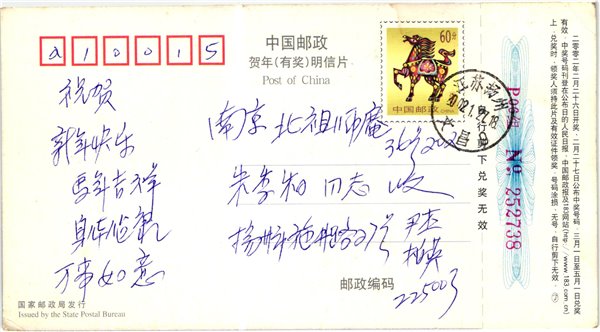 210015
中国邮政
贺年(有奖)明信片
Post of China
60分
中国邮政
江苏扬州
祝贺
新年快乐
马年吉祥
身体健康
万事如意
南京北祖师庵
36号203
朱季和同志 收
扬州施井路27号
邮政编码
225003
国家邮政局发行
Issued by the State Postal Bureau
自行剪下兑奖无效
No. 252738
二〇〇二年二月二十六日开奖。二月二十七日公布中奖号码 三月一日至五月一日兑奖
有效。中奖号码刊登在公布日的人民日报、中国邮政报及183网站(http://www.183.com.cn)
上。兑奖时，领奖人须持此片及有效证件领奖。号码涂损、无号、自行剪下无效。